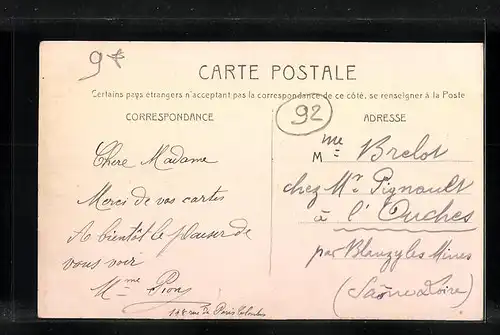 9€
CARTE POSTALE
Certains pays étrangers n'acceptant pas la correspondance de ce côté, se renseigner à la Poste
CORRESPONDANCE
92
ADRESSE
Chere Madame
Merci de vos cartes
A bientôt le plaisir de
vous voir
Mme Piory
148 rue de Paris Colombes
Mme Brelot
chez Mr Pignault
à l'Ouches
par Blanzy les Mines
(Saône & Loire)